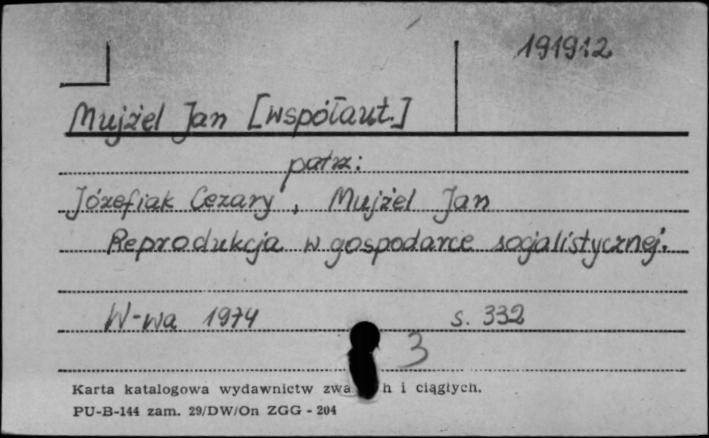 191912
Mujżel Jan [współaut.]
patrz:
Józefiak Cezary, Mujżel Jan
Reprodukcja w gospodarce socjalistycznej.
W-wa 1974 s. 332
3
Karta katalogowa wydawnictw zwa h i ciągłych.
PU-B-144 zam. 29/DW/On ZGG - 204